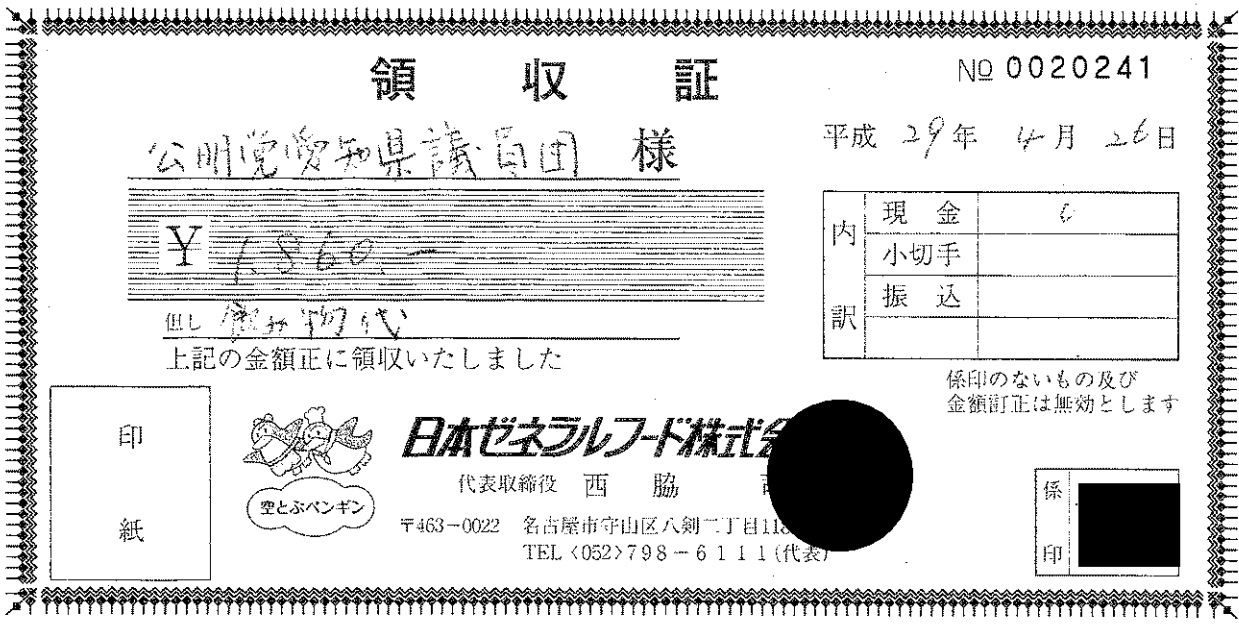 領収証
No 0020241
公明党愛知県議員団 様
平成 29年 4月 26日
¥ 1,860.-
但し 飲み物代
上記の金額正に領収いたしました
内訳
現金
小切手
振込
係印のないもの及び
金額訂正は無効とします
印紙
空とぶペンギン
日本ゼネラルフード株式会
代表取締役 西脇
〒463-0022 名古屋市守山区八剣二丁目118
TEL〈052〉798-6111(代表)
係印